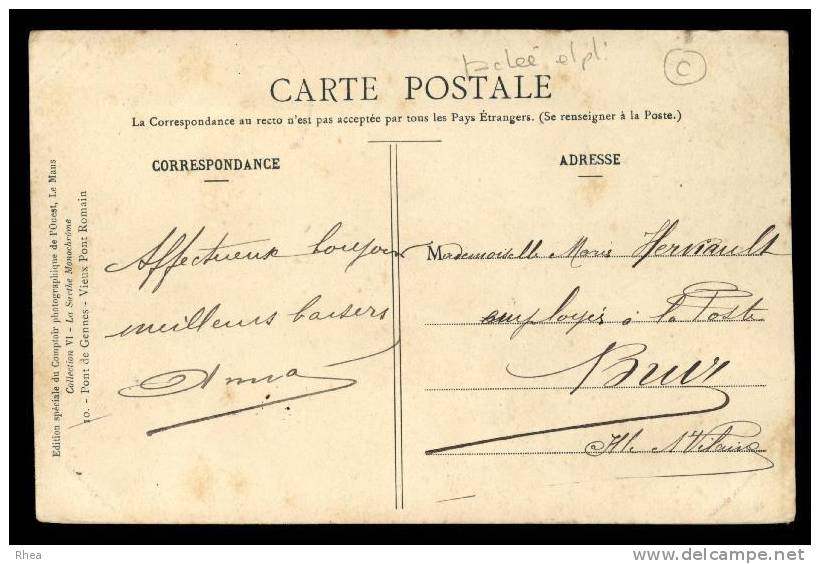 tachée et pli
C
CARTE POSTALE
La Correspondance au recto n'est pas acceptée par tous les Pays Étrangers. (Se renseigner à la Poste.)
CORRESPONDANCE
ADRESSE
Affectueux bonjour
meilleurs baisers
Anna
Mademoiselle Marie Herviault
employée à la Poste
Bruz
Ille & Vilaine
Edition spéciale du Comptoir photographique de l'Ouest, Le Mans
Collection VI - La Sarthe Monochrôme
10. - Pont de Gennes - Vieux Pont Romain
Rhea
www.delcampe.net